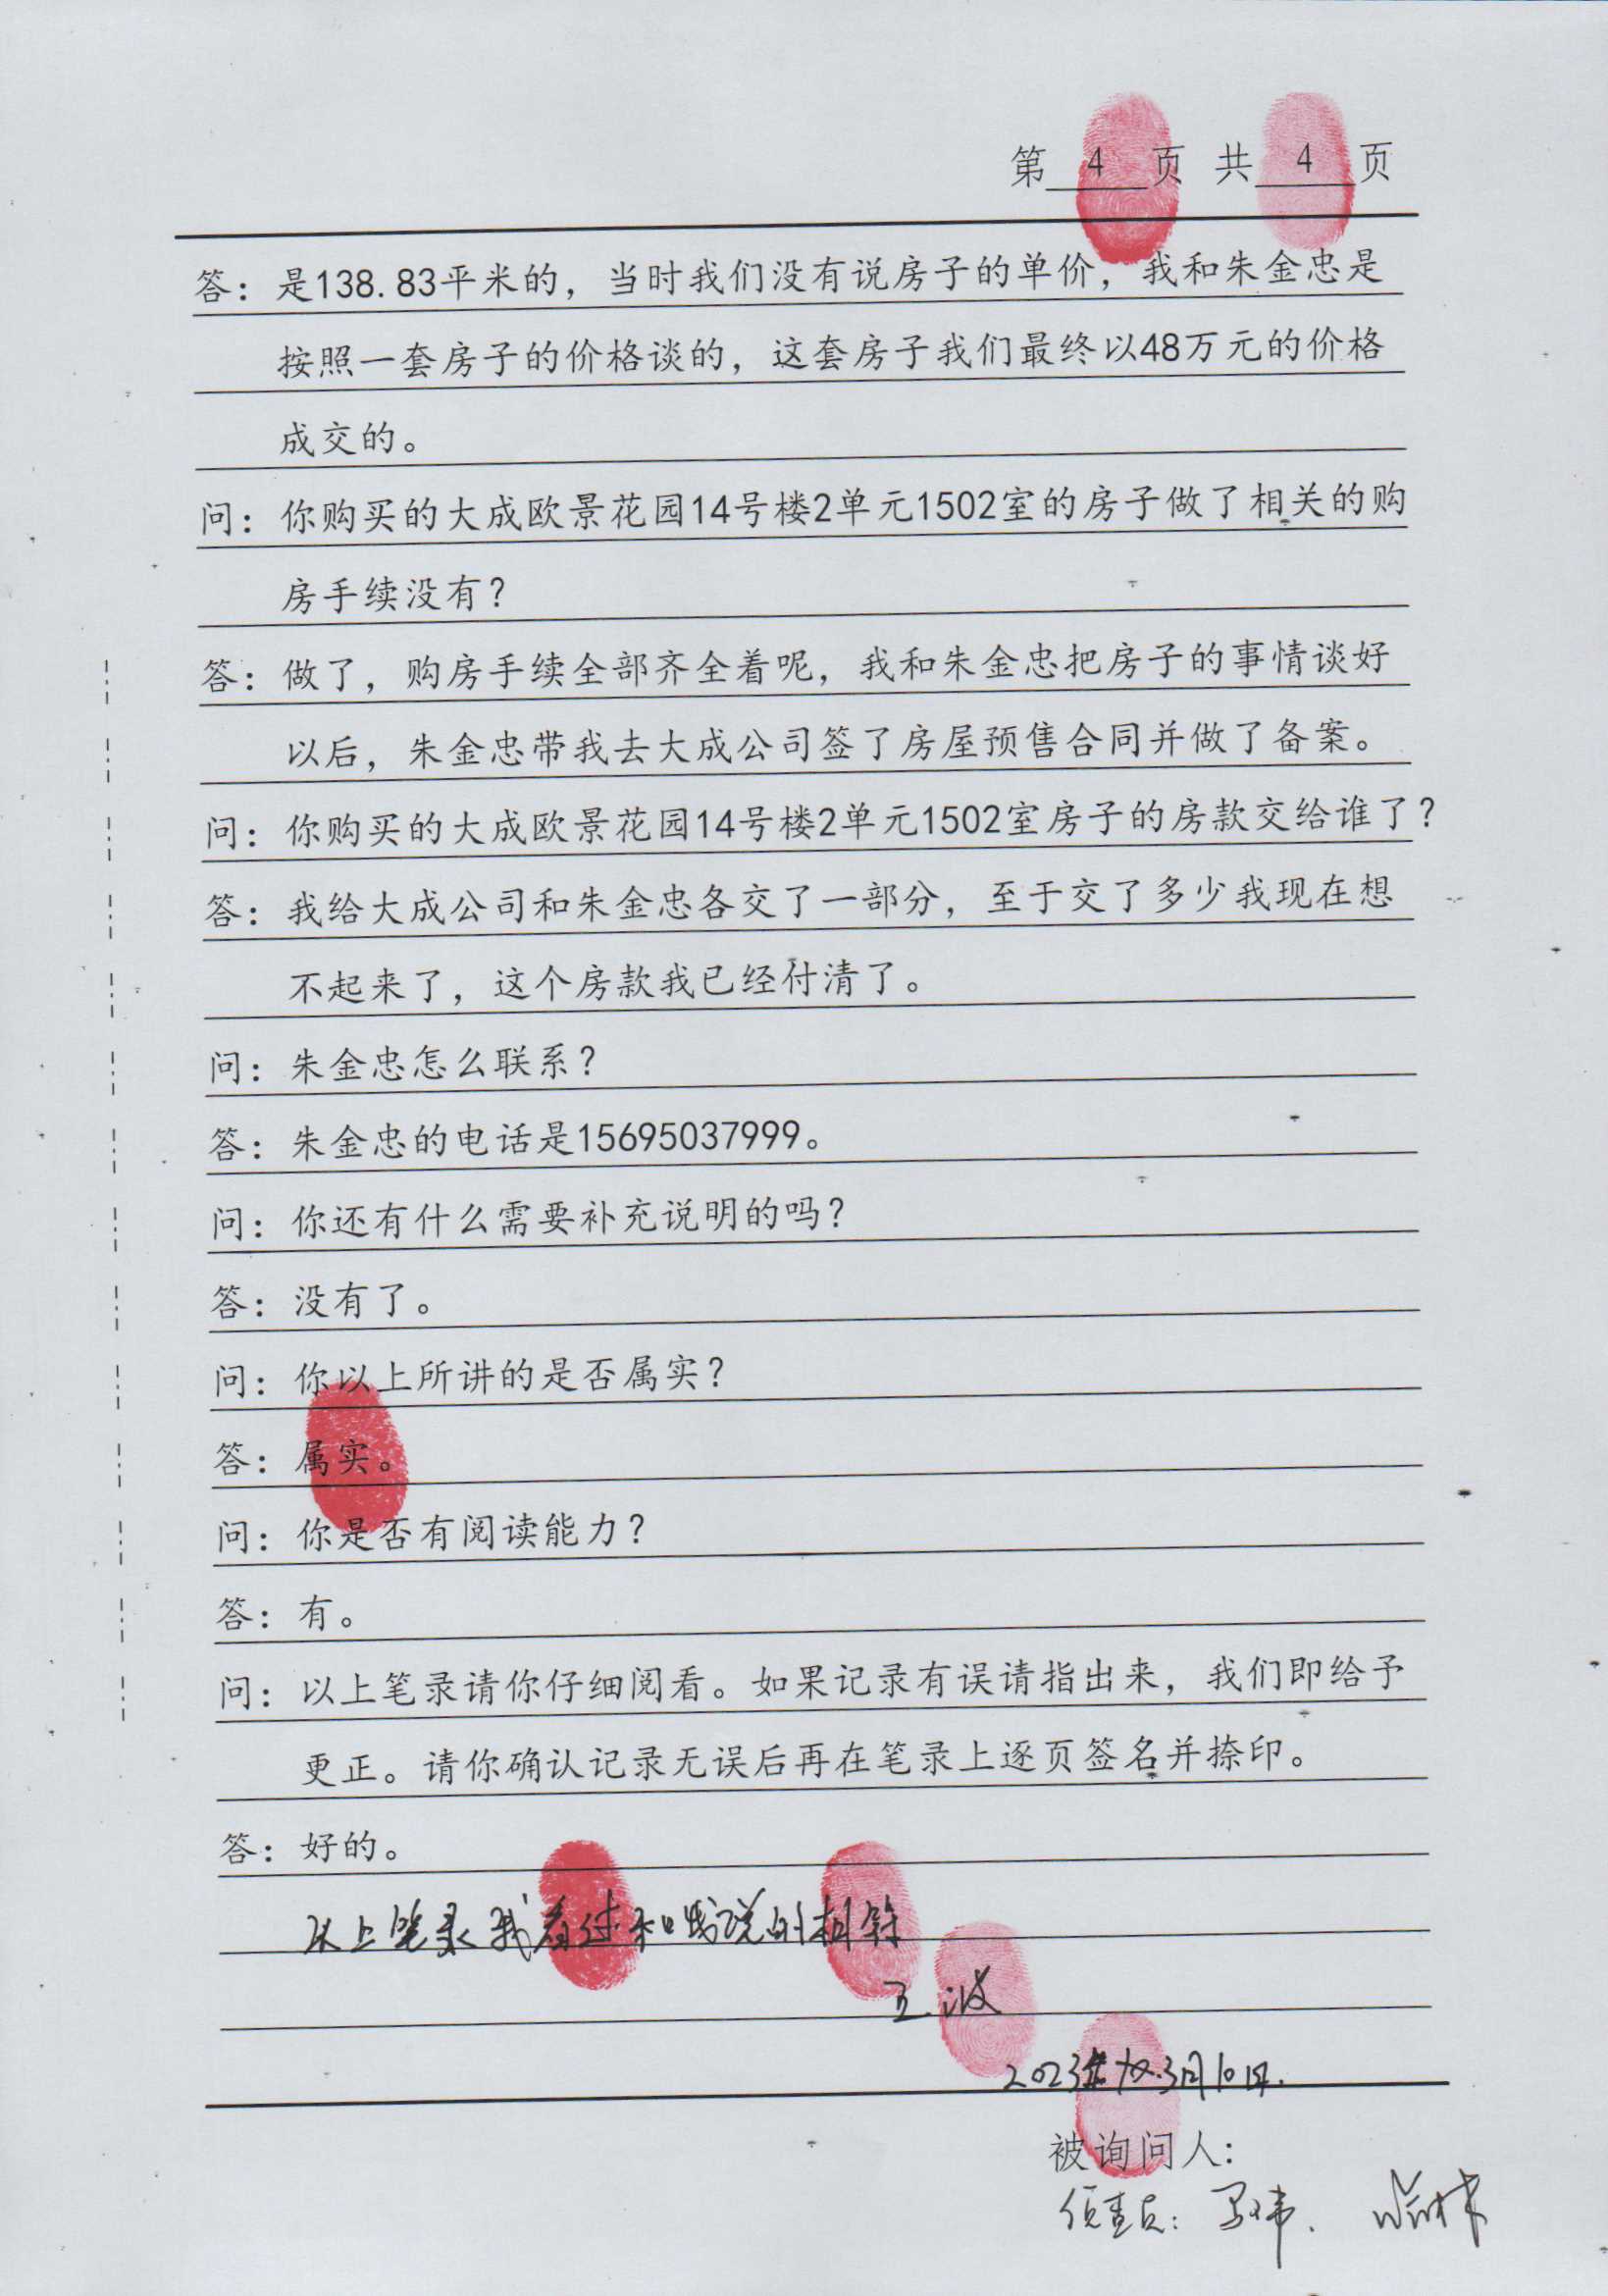 第 4 页 共 4 页
答：是138.83平米的，当时我们没有说房子的单价，我和朱金忠是
按照一套房子的价格谈的，这套房子我们最终以48万元的价格
成交的。
问：你购买的大成欧景花园14号楼2单元1502室的房子做了相关的购
房手续没有？
答：做了，购房手续全部齐全着呢，我和朱金忠把房子的事情谈好
以后，朱金忠带我去大成公司签了房屋预售合同并做了备案。
问：你购买的大成欧景花园14号楼2单元1502室房子的房款交给谁了？
答：我给大成公司和朱金忠各交了一部分，至于交了多少我现在想
不起来了，这个房款我已经付清了。
问：朱金忠怎么联系？
答：朱金忠的电话是15695037999。
问：你还有什么需要补充说明的吗？
答：没有了。
问：你以上所讲的是否属实？
答：属实。
问：你是否有阅读能力？
答：有。
问：以上笔录请你仔细阅看。如果记录有误请指出来，我们即给予
更正。请你确认记录无误后再在笔录上逐页签名并捺印。
答：好的。
以上笔录我看过和我说的相符
王波
2023年 3月10日.
被询问人：
侦查员：